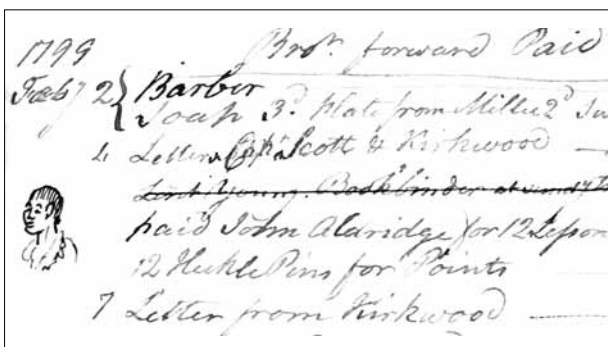 1799 Bro.t forward Paid
Feby 2 { Barber
Soap 3d. Plate from Miller 2d
4 Letter Capt. Scott & Kirkwood
Lent Young Bookbinder at
paid John Aldridge for 12 Lesson
12 Heckle Pins for Points
7 Letter from Kirkwood